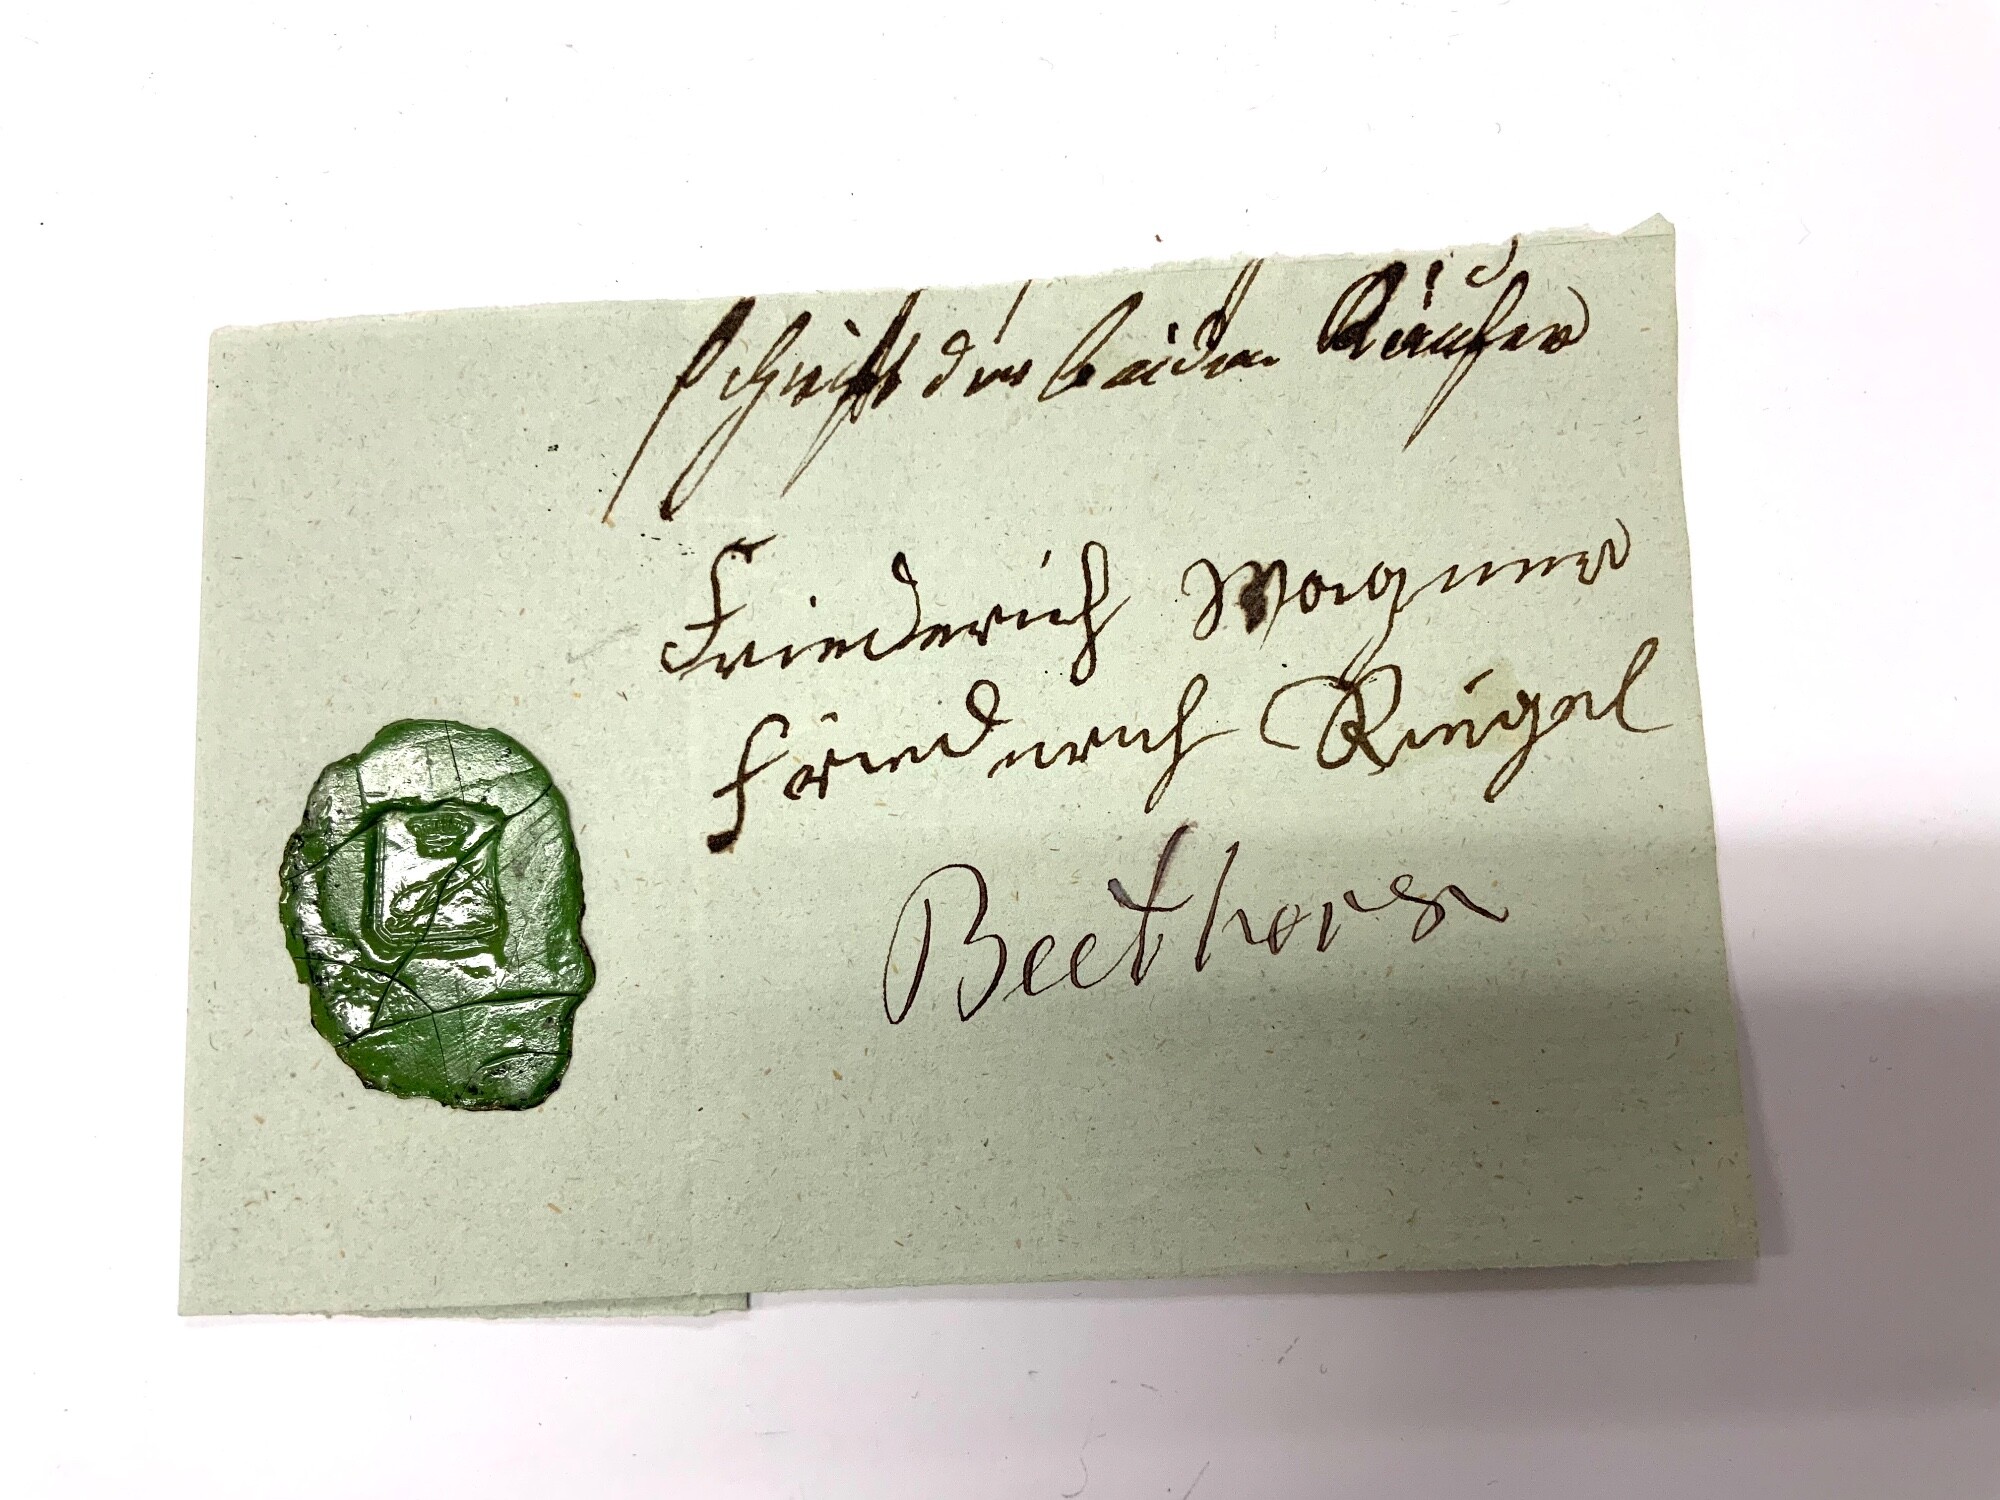 schrift der beiden Käufer
Friederich Wagner
Friederich Riegel
Beethoven